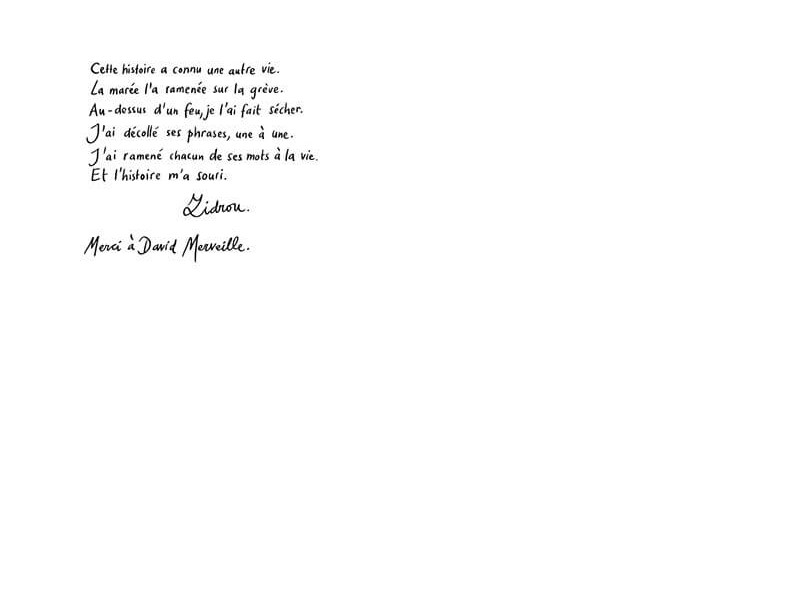 Cette histoire a connu une autre vie.
La marée l'a ramenée sur la grève.
Au-dessus d'un feu, je l'ai fait sécher.
J'ai décollé ses phrases, une à une.
J'ai ramené chacun de ses mots à la vie.
Et l'histoire m'a souri.
Zidrou.
Merci à David Merveille.